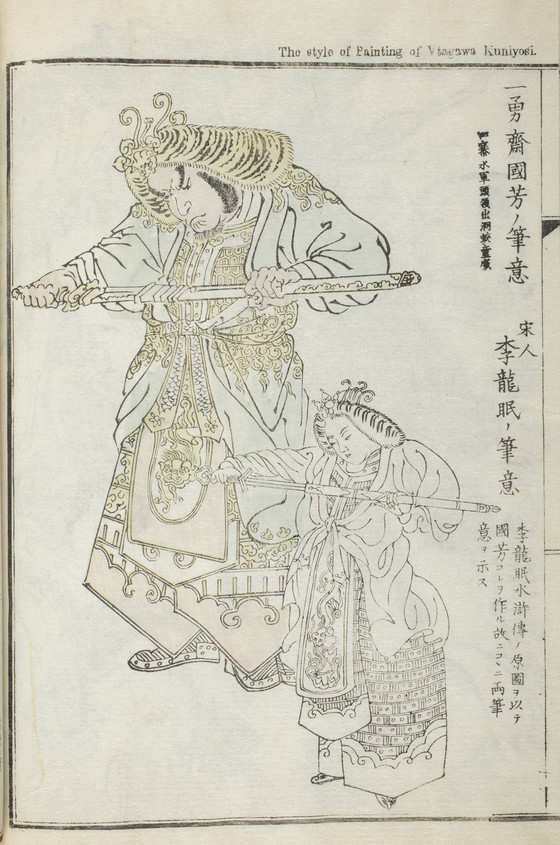 The style of Painting of Vtagawa Kuniyosi.
一勇齋國芳ノ筆意
寨水軍頭領出洞蛟童
宋人
李龍眠ノ筆意
李龍眠水滸傳ノ原圖ヲ以テ
國芳コレヲ作ル故ニコヽニ両筆
意ヲ示ス